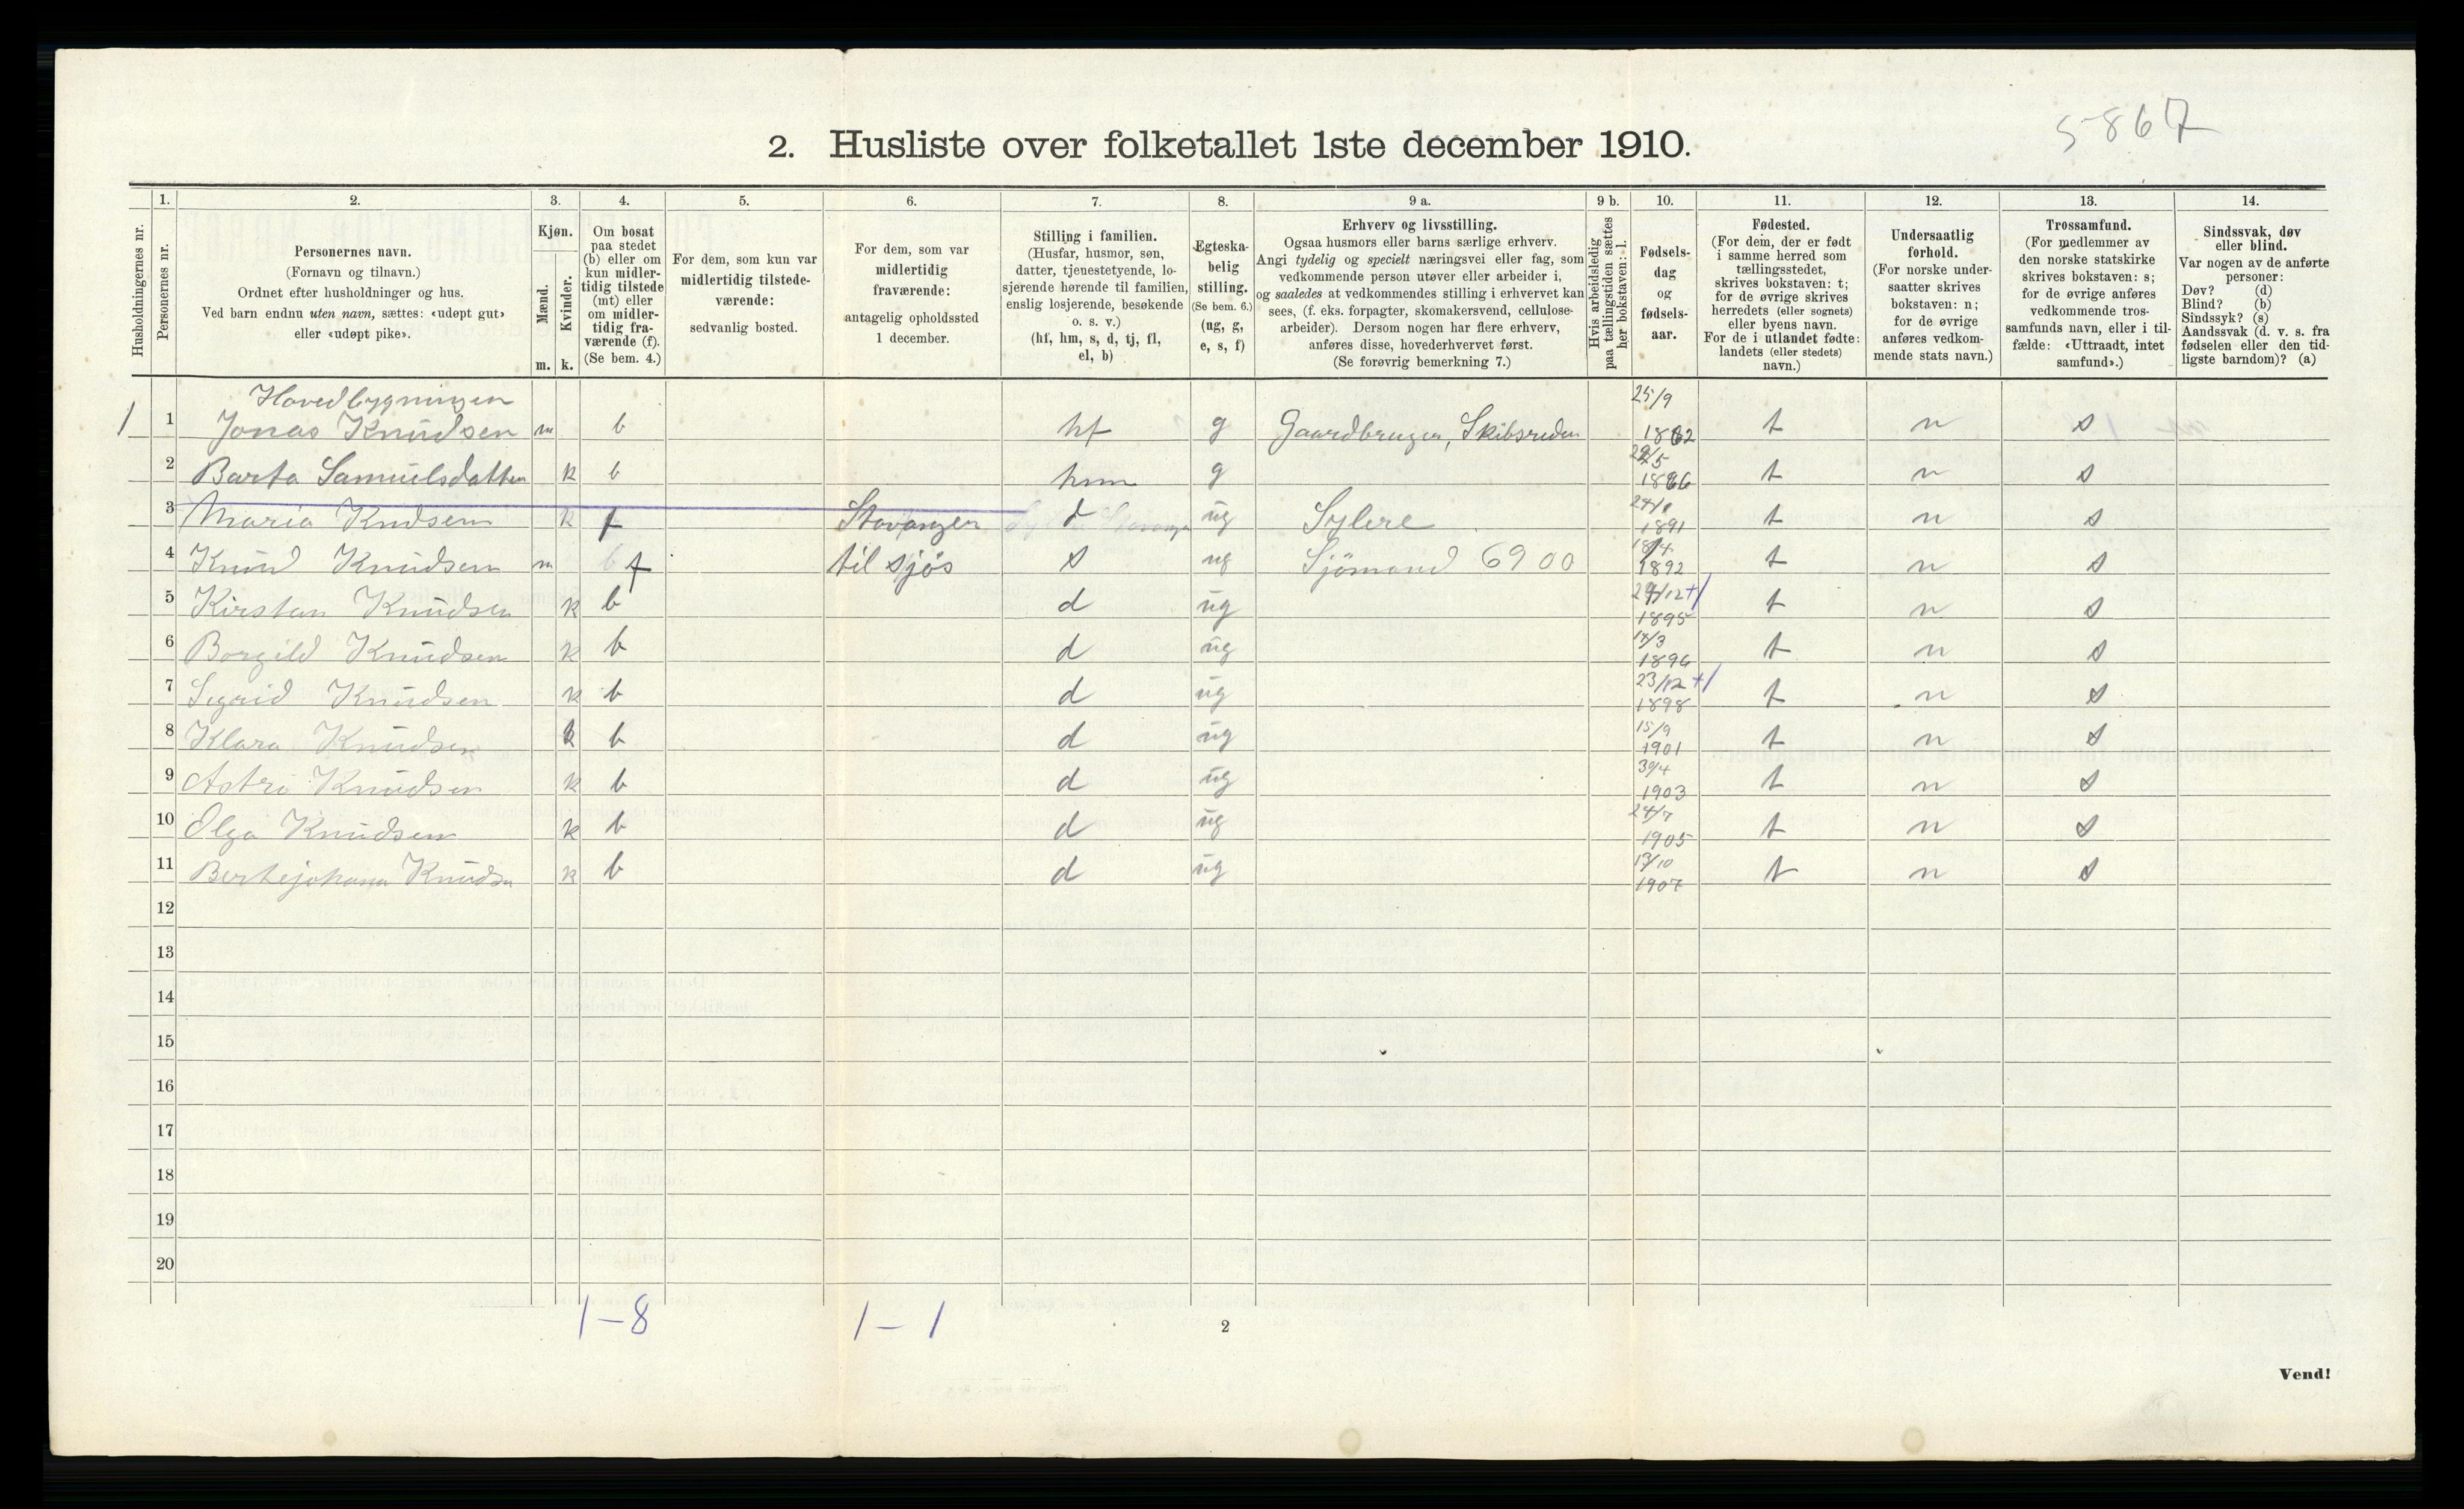 5867
2. Husliste over folketallet 1ste december 1910.
Husholdningernes nr.
1.
Personernes nr.
2.
Personernes navn.
(Fornavn og tilnavn.)
Ordnet efter husholdninger og hus.
Ved barn endnu uten navn, sættes: «udøpt gut»
eller «udøpt pike».
3.
Kjøn.
Mænd.
Kvinder.
m. k.
4.
Om bosat
paa stedet
(b) eller om
kun midler-
tidig tilstede
(mt) eller
om midler-
tidig fra-
værende (f).
(Se bem. 4.)
5.
For dem, som kun var
midlertidig tilstede-
værende:
sedvanlig bosted.
6.
For dem, som var
midlertidig
fraværende:
antagelig opholdssted
1 december.
7.
Stilling i familien.
(Husfar, husmor, søn,
datter, tjenestetyende, lo-
sjerende hørende til familien,
enslig losjerende, besøkende
o. s. v.)
(hf, hm, s, d, tj, fl,
el, b)
8.
Egteska-
belig
stilling.
(Se bem. 6.)
(ug, g,
e, s, f)
9 a.
Erhverv og livsstilling.
Ogsaa husmors eller barns særlige erhverv.
Angi tydelig og specielt næringsvei eller fag, som
vedkommende person utøver eller arbeider i,
og saaledes at vedkommendes stilling i erhvervet kan
sees, (f. eks. forpagter, skomakersvend, cellulose-
arbeider). Dersom nogen har flere erhverv,
anføres disse, hovederhvervet først.
(Se forøvrig bemerkning 7.)
9 b.
Hvis arbeidsledig
paa tællingstiden sættes
her bokstaven: l.
10.
Fødsels-
dag
og
fødsels-
aar.
11.
Fødested.
(For dem, der er født
i samme herred som
tællingsstedet,
skrives bokstaven: t;
for de øvrige skrives
herredets (eller sognets)
eller byens navn.
For de i utlandet fødte:
landets (eller stedets)
navn.)
12.
Undersaatlig
forhold.
(For norske under-
saatter skrives
bokstaven: n;
for de øvrige
anføres vedkom-
mende stats navn.)
13.
Trossamfund.
(For medlemmer av
den norske statskirke
skrives bokstaven: s;
for de øvrige anføres
vedkommende tros-
samfunds navn, eller i til-
fælde: «Uttraadt, intet
samfund».)
14.
Sindssvak, døv
eller blind.
Var nogen av de anførte
personer:
Døv? (d)
Blind? (b)
Sindssyk? (s)
Aandssvak (d. v. s. fra
fødselen eller den tid-
ligste barndom)? (a)
Hovedbygningen
1 1 Jonas Knudsen m b hf g Gaardbruger, Skibsreder 25/9 1862 t n s
2 Barta Samuelsdatter k b hm g /5 1866 t n s
3 Maria Kndsen k f Stavanger d ug Sylere 1891 t n s
4 Knud Knudsen m f til sjøs s ug Sjömand 6900 1892 t n s
5 Kirsten Knudsen k b d ug 29/12 +/ 1895 t n s
6 Borgild Knudsen k b d ug 14/3 1896 t n s
7 Sigrid Knudsen k b d ug 23/12 +/ 1898 t n s
8 Klara Knudsen k b d ug 15/9 1901 t n s
9 Astri Knudsen k b d ug 30/4 1903 t n s
10 Olga Knudsen k b d ug 24/7 1905 t n s
11 Bertejohana Knudsn k b d ug 13/10 1907 t n s
12
13
14
15
16
17
18
19
20
1-8 1-1
2
Vend!